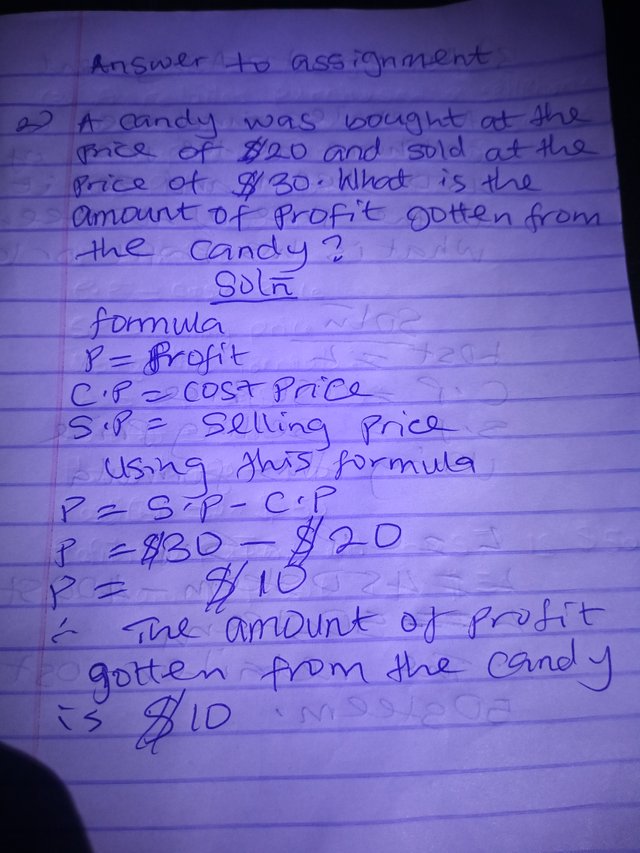 Answer to assignment
2) A candy was bought at the
price of $20 and sold at the
price of $30. What is the
amount of profit gotten from
the candy?
Soln
formula
P = Profit
C.P = Cost Price
S.P = Selling price
using this formula
P = S.P - C.P
P = $30 - $20
P = $10
∴ The amount of profit
gotten from the candy
is $10